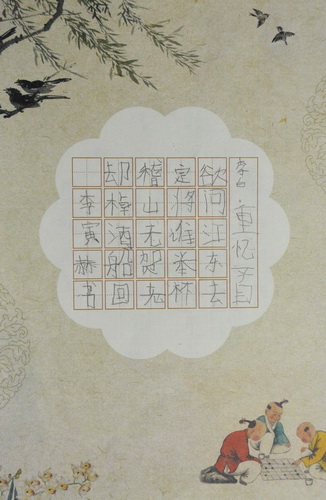 李白 重忆一首
欲向江东去
定将谁举杯
稽山无贺老
却棹酒船回
李寅赫书